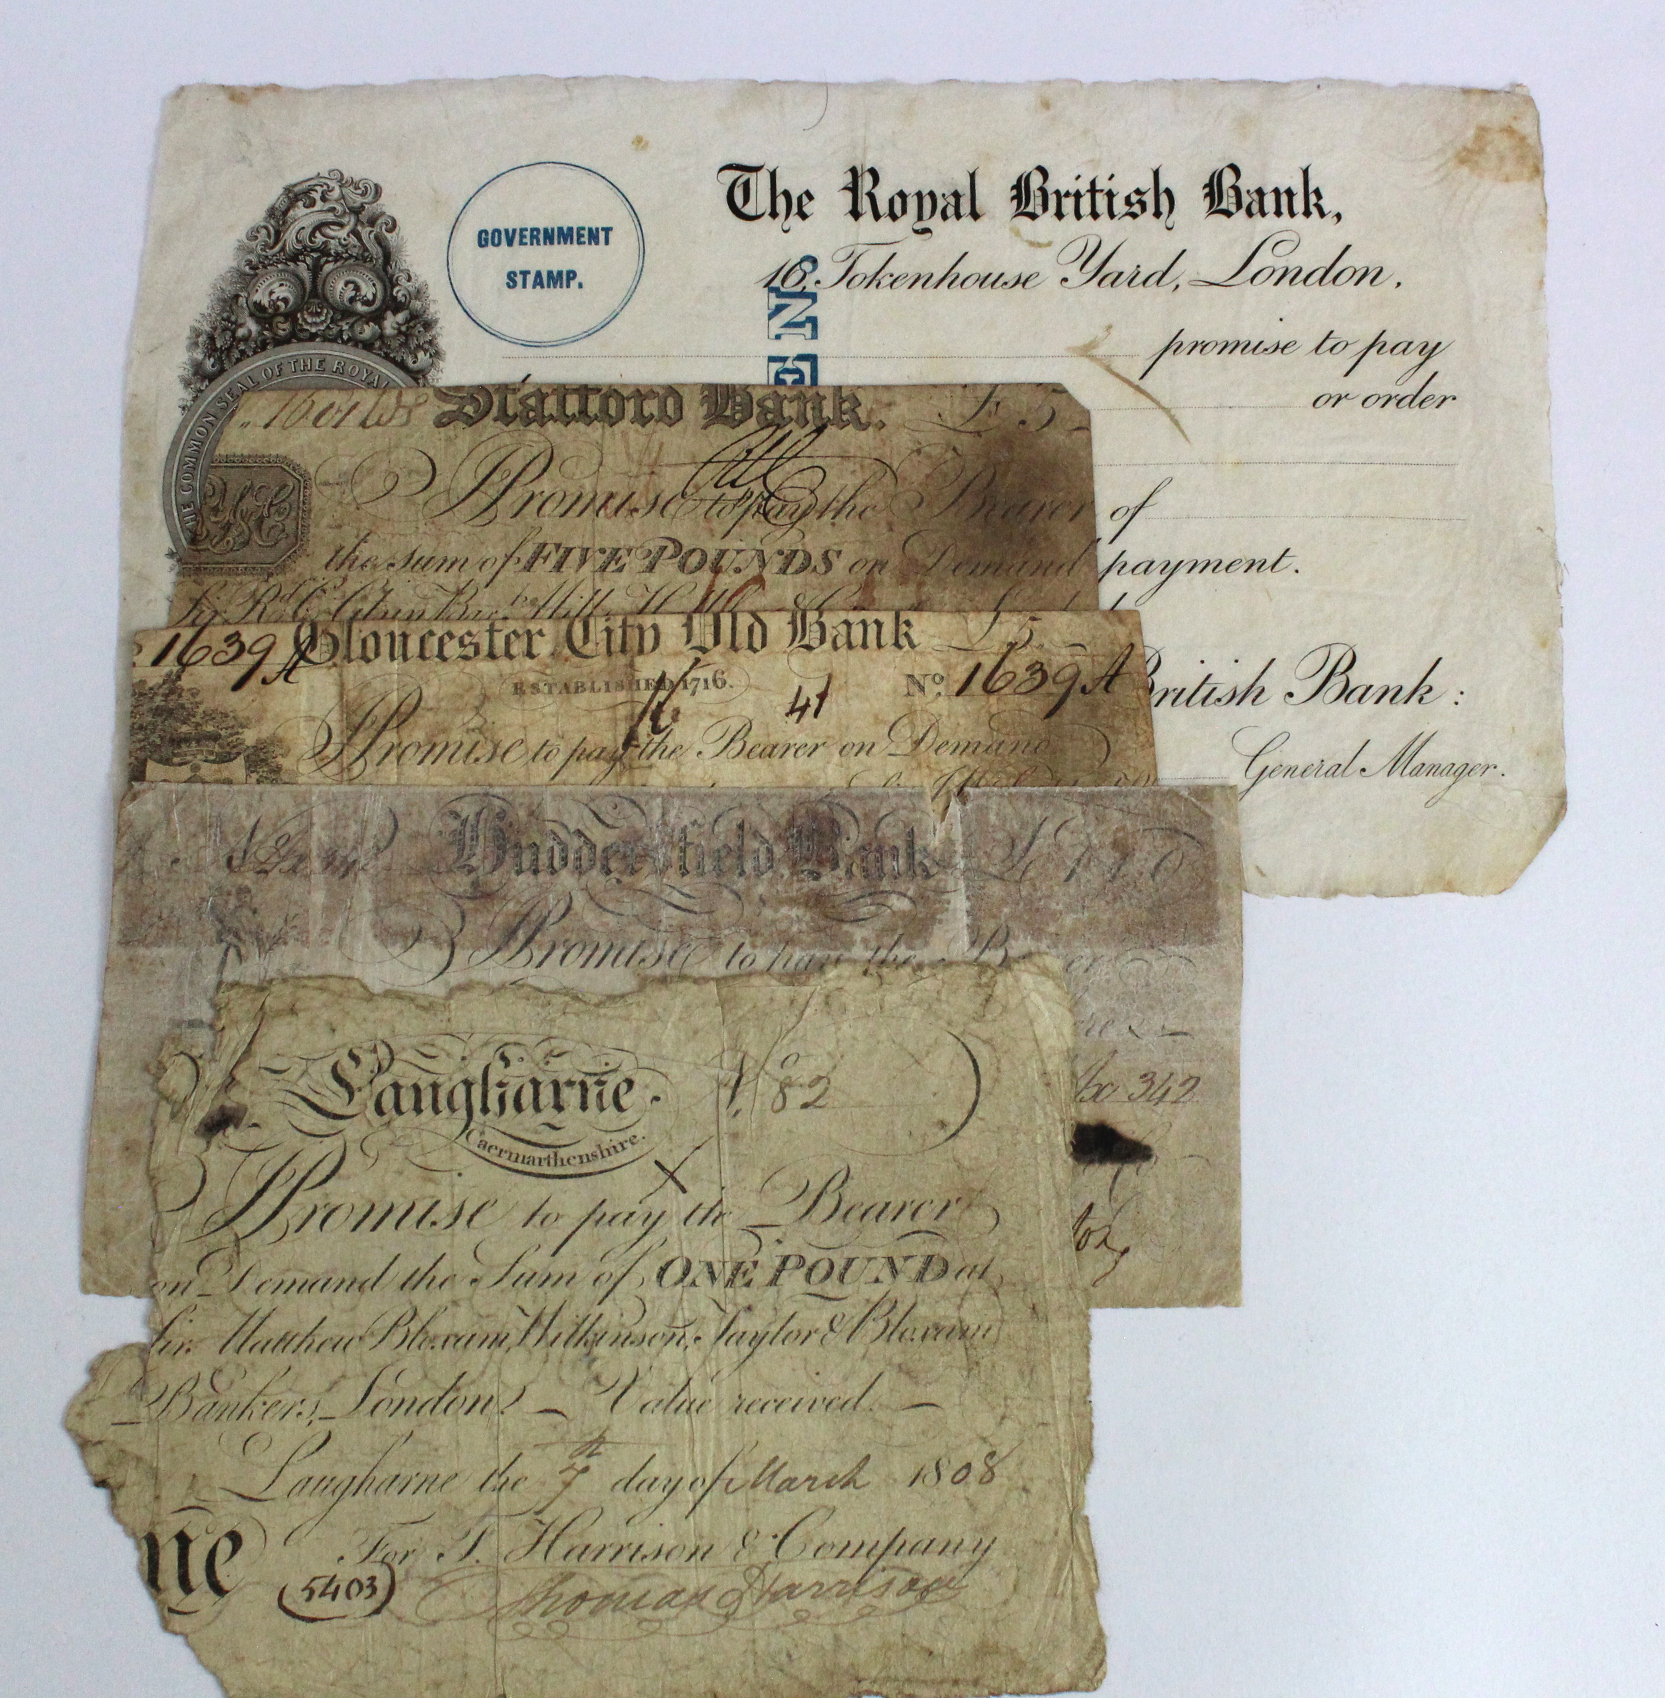 The Royal British Bank,
GOVERNMENT
STAMP.
16, Tokenhouse Yard, London.
promise to pay
or order
THE COMMON SEAL OF THE ROYAL
of
payment.
British Bank:
General Manager.
Stafford Bank. £5
Promise to pay the Bearer
the sum of FIVE POUNDS on Demand
1639 A Gloucester City Old Bank £5
ESTABLISHED 1716. No. 1639 A
41
Promise to pay the Bearer on Demand
Huddersfield Bank
Promise to pay the Bearer
342
Laugharne. No. 82
Caermarthenshire.
X
Promise to pay the Bearer
on Demand the Sum of ONE POUND at
Sir Matthew Bloxam, Wilkinson, Taylor & Bloxam
Bankers, London. Value received.
Laugharne the 7th day of March 1808
For T. Harrison & Company
ne
5403
Thomas Harrison